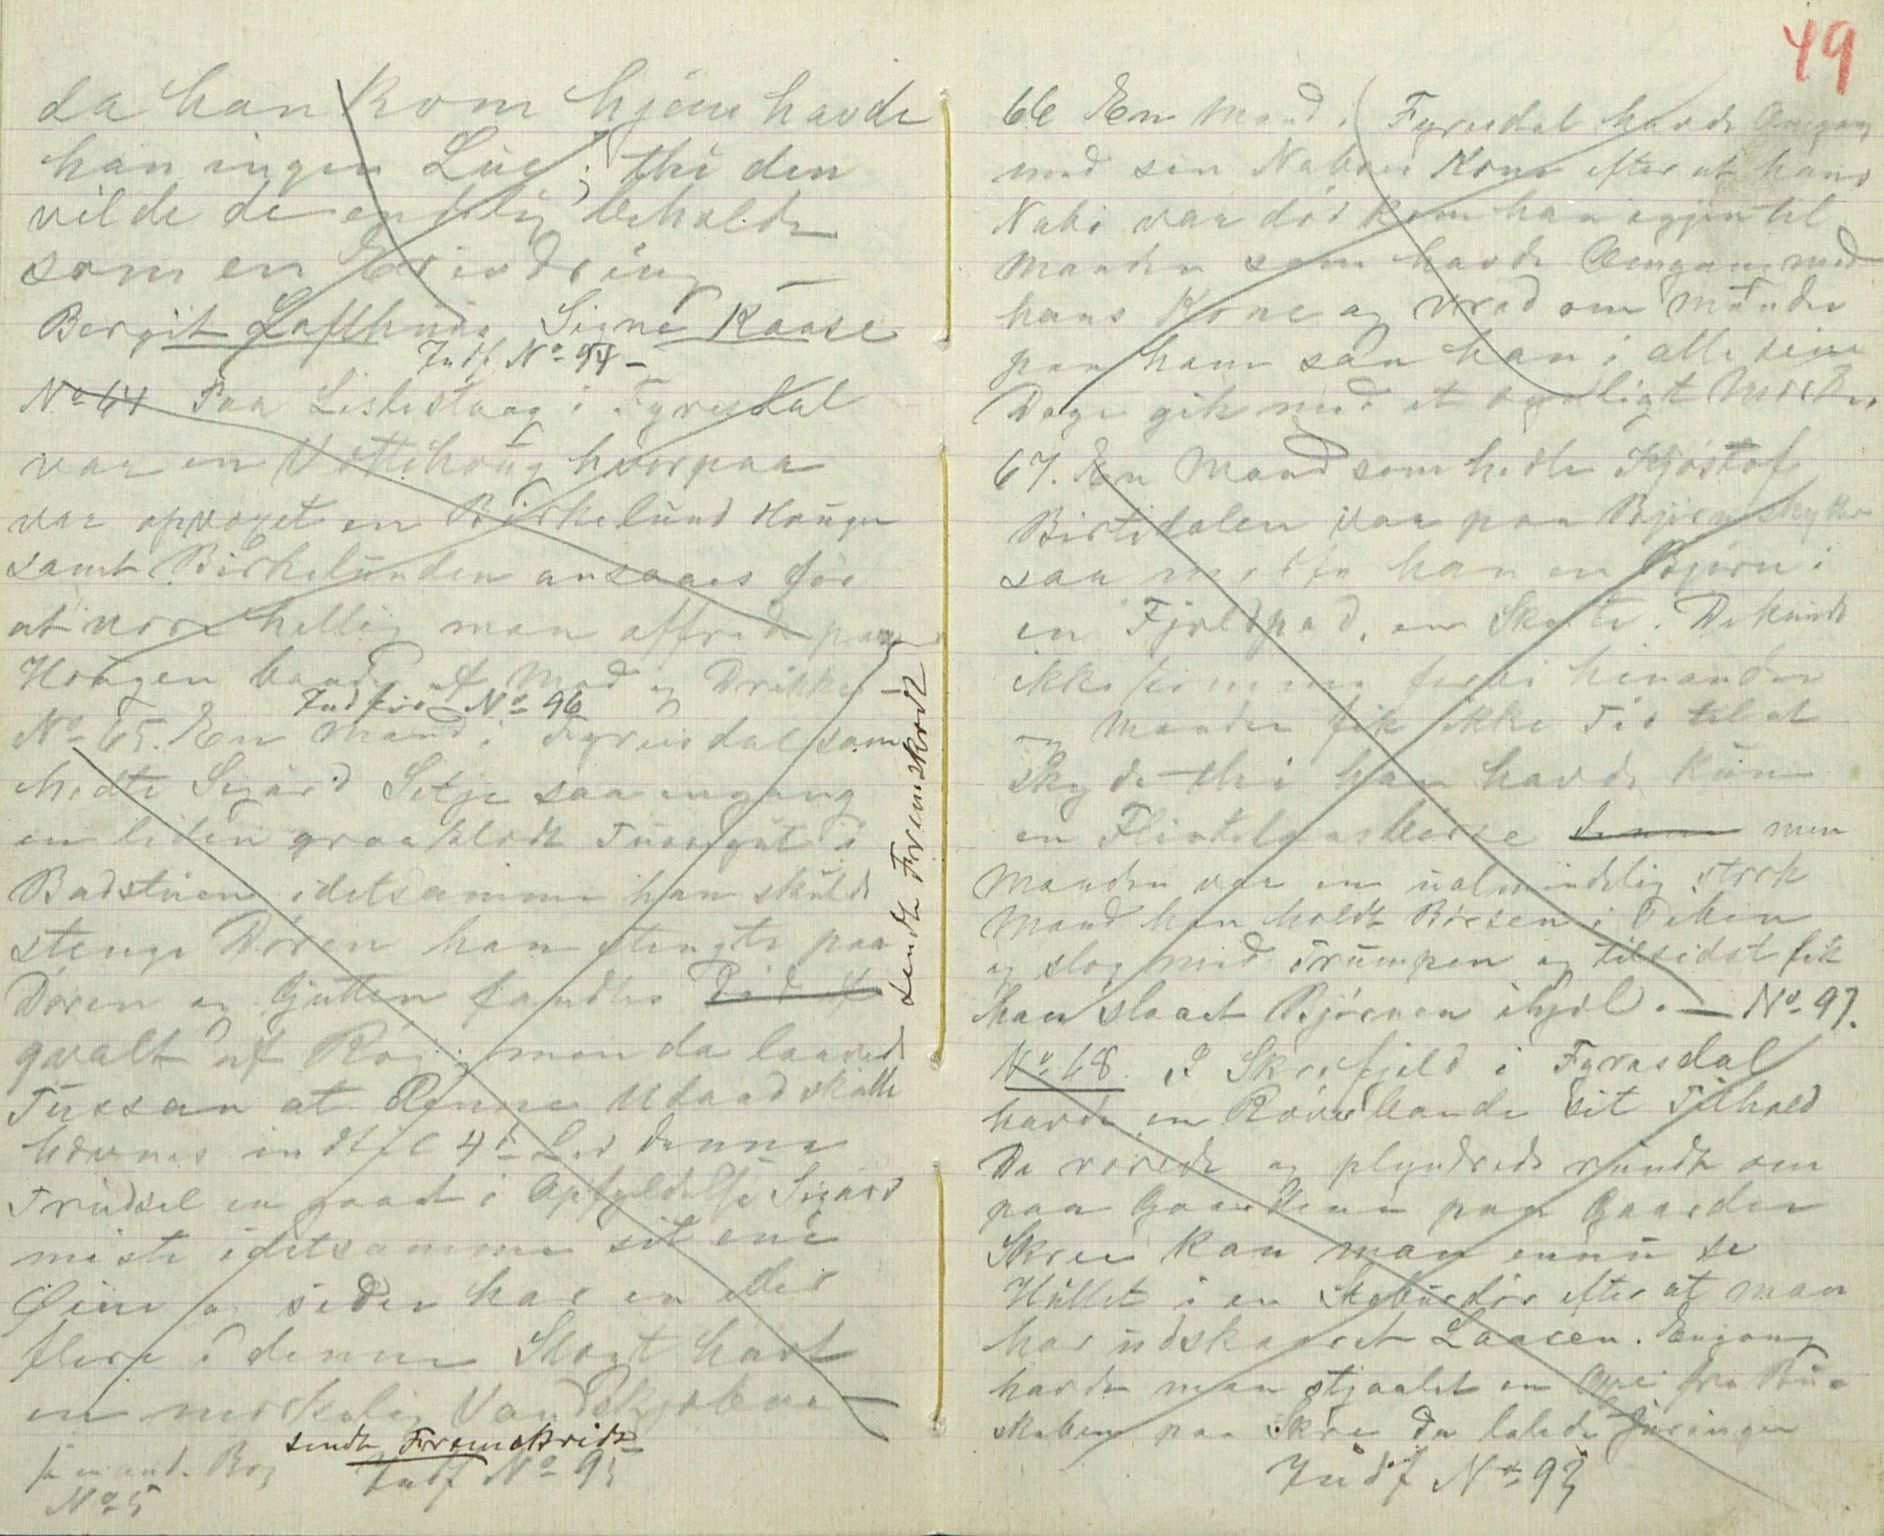 da han kom hjem havde
han ingen Lue; thi den
vilde de endelig beholde
som en Erindring —
Bergit Lofthuus Signe Kaase
Indf No 94 —
No 64 Paa Lislestaag i Fyresdal
var en Vættehoug hvorpaa
var opvoxet en Birkelund Hougen
samt Birkelunden ansaaes for
at være hellig man offrede paa
Hougen baade af Mad og Drikke —
Indført No 96
No 65. En Mand i Fyresdal som
hedte Sigurd Setje saa engang
en liden graaklædt Tussegut i
Badstuen idetsamme han skulde
stenge Døren han stengte paa
Døren og Gutten fandtes Død af
qvalt af Røg; men da lavede
Tussen at denne Udaad skulde
hævnes indtil 4de Led denne
Trudsel en gaaet i Opfyldelse Sigurd
miste idetsamme sit ene
Øine og siden har en eller
flere i denne Slægt havt
en mærkelig Vandskjæbne —
sendt Fremskridt
Indf No 95
i en anden Bog
No 5
sendt Fremskridt
49
66 En Mand i Fyresdal havde Omgang
med sin Naboes Kone efter at hans
Nabo var død kom han igjen til
Manden som havde Omgang med
hans Kone og vred om Munden
paa ham saa han i alle sine
Dage gik med et synligt Mærke
67. En Mand som hedte Kjøstof
Birtedalen var paa Bjørneskytter
saa mødte han en Bjørn i
en Fjeldpad, en Skorte. De kunde
ikke komme forbi hinanden
og Manden fik ikke Tid til at
skyde thi han havde kun
en Flintelaasbørse denne men
Manden var en ualmindelig sterk
Mand han holdt Børsen i Piben
og slog med Trumpen og tilsidst fik
han slaaet Bjørnen ihjel. — No 97.
No 68. I Skrefjeld i Fyresdal
havde en Røverbande sit Tilhold
De røvede og plyndrede rundt om
paa Gaardene paa Gaarden
Skree kan man ennu se
Hullet i en Stabursdør efter at man
har udskaaret Laasen. Engang
havde man stjaalet en Oxe fra Bu-
skaben paa Skre da lalede Juringen
Indf No 93